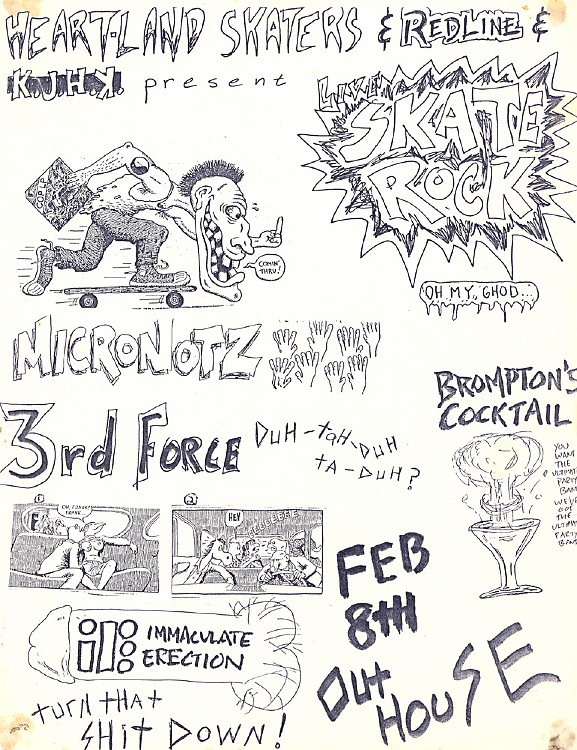 HEARTLAND SKATERS & REDLINE &
K.J.H.K. present
LIVE!
SKATE
ROCK
COMIN'
THRU!
OH MY GHOD...
MICRONOTZ
BROMPTON'S
COCKTAIL
3rd FORCE
DUH-taH-DUH
TA-DUH?
YOU
WANT
THE
ULTIMATE
PARTY
BAND
WE'VE
GOT
THE
ULTIMATE
PARTY
BAND
1
2
HEY
FEB
8TH
OUT
HOUSE
IMMACULATE
ERECTION
turn tHAt
SHit DOWN!